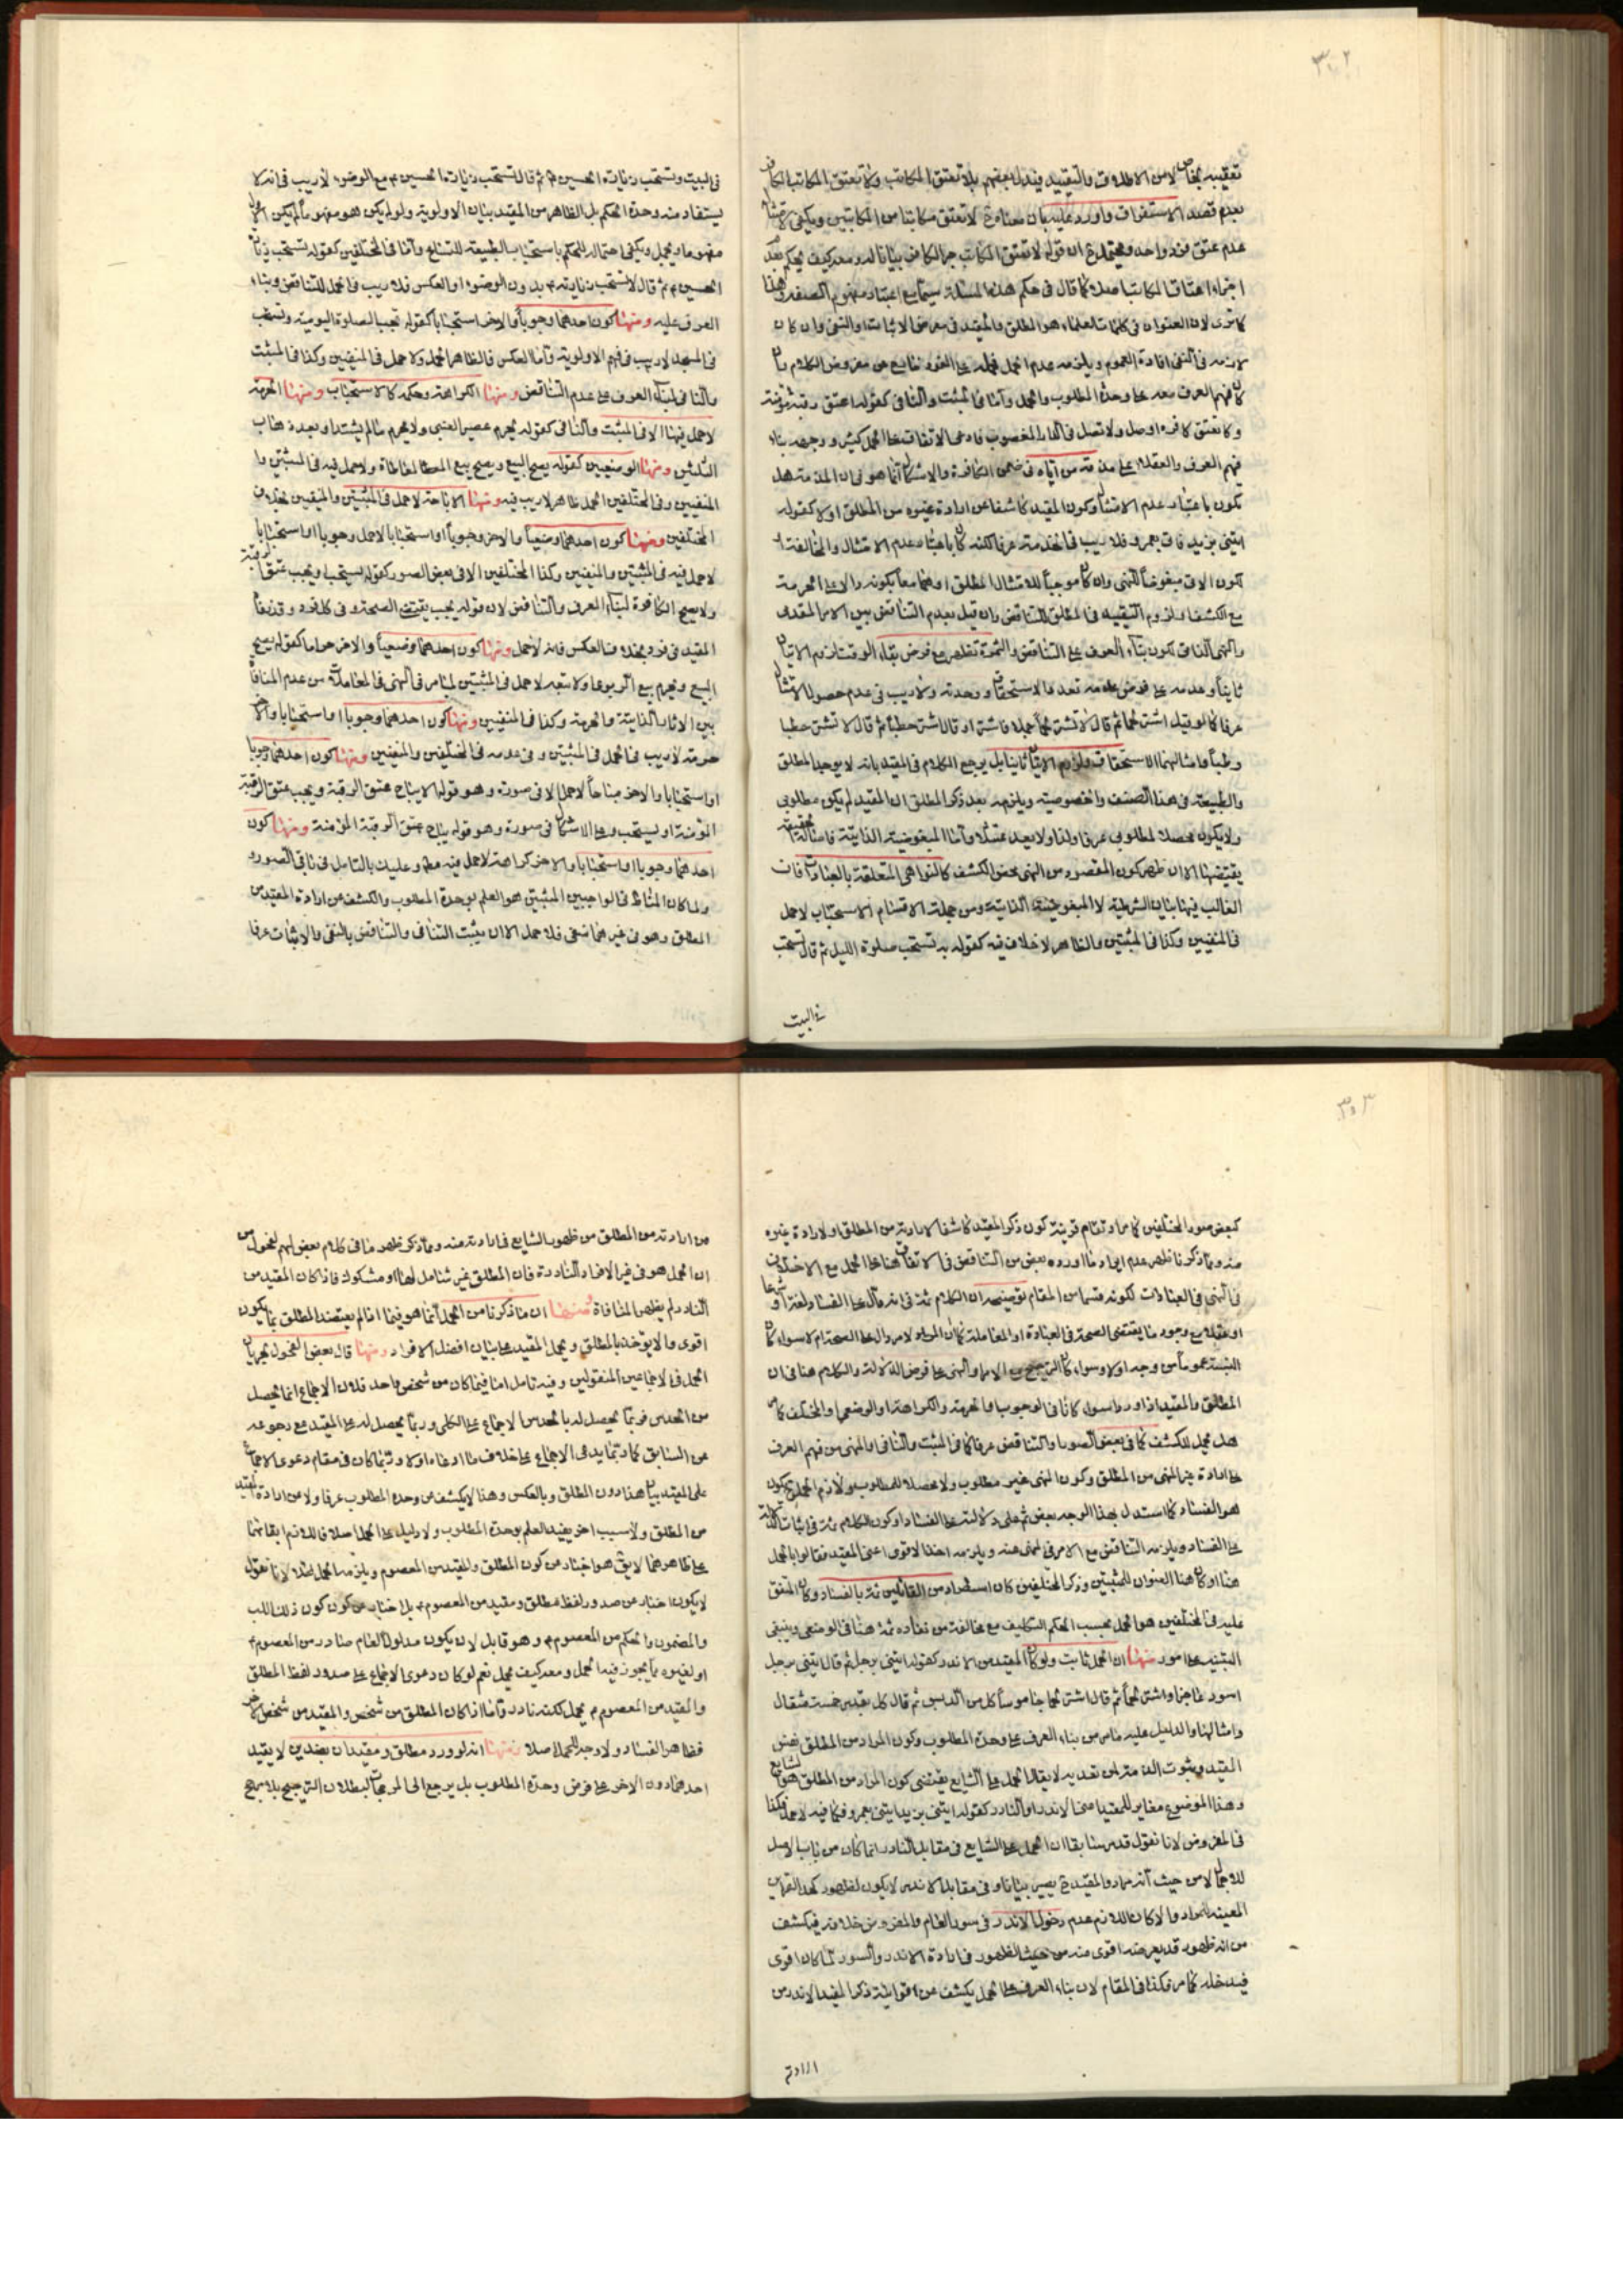 ٣٠٢
تعقيبه بخاص لا من الاطلاق والتقييد فيدل بعضهم بلا تعتق المكاتب ولا تعتق المكاتب الكافر
بعدم قصد الاستغراق واورد عليه بان معناه ح لا تعتق مكاتبا من المكاتبين ويكفى لامتثاله
عدم عتق فرد واحد ويحتمل ح ان قوله لا تعتق المكاتب الكافر بيانا له ومعه كيف يحكم بعدم
اجزاء اعتاق المكاتب اصلا كما قال فى حكم هذه المسئلة سيما مع اعتبار مفهوم الصفة وهذا
كما ترى لان العنوان فى كلمات العلماء هو المطلق والمقيد فى معرض الاثبات او النفى وان كان
لازمه فى النفى افادة العموم ويلزمه عدم الحمل فحمله على الفرد خارج عن معروض الكلام
لا فهم العرف معه على وحدة المطلوب والحمل واما فى المثبت والنافى كقوله اعتق رقبة مؤمنة
ولا تعتق كافرة او صل ولا تصل فى الدار المغصوب فادعى الاتفاق على الحمل كثير ووجهه بناء
فهم العرف والعقلاء على مذمة من اتاه فى ضمن الكافرة والاشكال انما هو فى ان المذمة هل
تكون باعتبار عدم الامتثال وكون المقيد كاشفا عن ارادة غيره من المطلق او لا كقوله
ائتنى بزيد فات بعمرو فلا ريب فى الخدمة عرفا لكنه كان باعتبار عدم الامتثال والمخالفة
لكون الاتى مبغوضا للنهى وان كان موجبا للامتثال المطلق او هما معا بكونه دالا على الحرمة
مع الكشف او لزوم التقييد فى المطلق للتناقض وان قيل بعدم التناقض بين الامر المقدمى
والنهى النافى لكون بناء العرف على التناقض والثمرة تظهر مع فرض بقاء الوقت لزوم الاتيان
ثانيا وعدمه على فرض عدمه بعد ما لاستحقاق وحدته ولا ريب فى عدم حصول الامتثال
عرفا كما لو قيل اشتر لحما ثم قال لا تشتر لحما جملا فاشتراه او قال اشتر حطبا ثم قال لا تشتر حطبا
رطبا وامثالهما الاستحقاق ولزوم الاتيان ثانيا بل يرجع الكلام فى المقيد بانه لا يوجد المطلق
والطبيعة فى هذا الصنف والخصوصية ويلزمه بعد ذكر المطلق ان المقيد لم يكن مطلوبى
ولا يكون محصلا لمطلوبى عرفا ولذا ولا يعد ممتثلا واما المبغوضية الذاتية فاصالة الحقيقة
يقتضيها الا ان ظهر كون المقصود من النهى محض الكشف كالنواهى المتعلقة بالعبادات فان
الغالب فيها بيان الشرطية لا المبغوضية الذاتية ومن جملة الاقسام الاستحباب لا حمل
فى المنفيين وكذا فى المثبتين والظاهر لا خلاف فيه كقوله يستحب صلوة الليل ثم قال تستحب
فى البيت
فى البيت وتستحب زيارة الحسين ع ثم قال تستحب زيارة الحسين ع مع الوضوء لا ريب فى انه لا
يستفاد منه وحدة الحكم بل الظاهر من المقيد بيان الاولوية ولو لم يكن هو مفهوما لم يكن الاول
مفهوما ويجمل ويكفى احتماله للحكم باستحباب الطبيعة للتسامح واما فى المختلفين كقوله تستحب زيارة
الحسين ع ثم قال لا تستحب زيارته ع بدون الوضوء او العكس فلا ريب فى الحمل للتناقض وبناء
العرف عليه ومنها كون احدهما وجوبا والاخر استحبابا كقوله تجب الصلوة اليومية وتستحب
فى المسجد لا ريب فى فهم الاولوية واما العكس فالظاهر الحمل ولا حمل فى المنفيين وكذا فى المثبت
والنافى لبناء العرف على عدم التناقض ومنها الكراهة وحكمه كالاستحباب ومنها الحرمة
لا حمل فيها الا فى المثبت والنافى كقوله يحرم عصير العنبى ولا يحرم ما لم يشتد او بعد ذهاب
الثلثين ومنها الوضعيين كقوله يصح البيع ويصح بيع المعاطاة ولا حمل فيه فى المثبتين ولا
المنفيين وفى المختلفين الحمل ظاهر لا ريب فيه ومنها الاباحة لا حمل فى المثبتين والمنفيين بخلاف
المختلفين ومنها كون احدهما وضعيا والاخر وجوبا او استحبابا لا حمل وجوبا او استحبابا
لا حمل فيه فى المثبتين والمنفيين وكذا المختلفين الا فى بعض الصور كقوله يستحب او يجب عتق الرقبة
ولا يصح الكافرة لبناء العرف والتناقض لان قوله يجب يقتضى الصحة فى كل فرد وقد نفاه
المقيد فى فرد بخلاف العكس فانه لا حمل ومنها كون احدهما وضعيا والاخر حراما كقوله يصح
البيع ويحرم بيع الربوى ولا شبه لا حمل فى المثبتين لما مر فى النهى فى المعاملات من عدم المنافاة
بين الاثار الذاتية والحرمة وكذا فى المنفيين ومنها كون احدهما وجوبا او استحبابا والاخر
حرمة لا ريب فى الحمل فى المثبتين وفى عدمه فى المختلفين والمنفيين ومنها كون احدهما وجوبا
او استحبابا والاخر مباحا لا حمل الا فى صورة وهو قولها لا يباح عتق الرقبة ويجب عتق الرقبة
المؤمنة او يستحب وعلى الاشكال فى صورة وهو قوله يباح عتق الرقبة المؤمنة ومنها كون
احدهما وجوبا او استحبابا والاخر كراهة لا حمل فيه مطلقا وعليك بالتامل فى باقى الصور
ولما كان المناط فى الواجبين المثبتين هو العلم بوحدة المطلوب والكشف عن ارادة المقيد من
المطلق وهو فى غيرهما منفى فلا حمل الا ان يثبت التنافى والتناقض بالنفى والاثبات عرفا
٣٠٣
كبعض صور المختلفين كما مر او تقام قرينة كون ذكر المقيد كاشفا لارادته من المطلق او لارادة غيره
منه ومما ذكرنا ظهر عدم ايراد ما اورده بعض من التناقض فى الاتفاق هنا على الحمل مع الاختلاف
فى النهى فى العبادات لكونه قسما من المقام توضيحه ان الكلام ثمة فى انه دال على الفساد لغة او شرعا
او عقلا مع وجود ما يقتضى الصحة فى العبادة او المعاملة كان المراد الامر دال على الصحة ام لا سواء كان
النسبة عموما من وجه او لا وسواء كان الترجيح مع الامر او النهى على فرض الدلالة والكلام هنا فى ان
المطلق والمقيد اذا وردا سواء كانا فى الوجوب والحرمة والكراهة او الوضعى او المختلف كما مر
هل يحمل للكشف كما فى بعض الصور او التناقض عرفا كما فى المثبت والنافى والمنهى من فهم العرف
على ارادة غير المنهى من المطلق وكون المنهى غير مطلوب ولا محصلا للمطلوب ولازم الحمل ح يكون
هو الفساد كما استدل بهذا الوجه بعض ثم على دلالته على الفساد او كون الكلام ثمة فى اثبات الدلالة
على الفساد ويلزمه التناقض مع الامر فى المنهى عنه ويلزمه اخذ الاقوى اعنى المقيد فقالوا بالحمل
هنا او كان هنا العنوان للمثبتين وذكر المختلفين كان استطرادا من القائلين ثمة بالفساد وكان المتفق
عليه فى المختلفين هو الحمل بحسب الحكم التكليف مع مخالفة من نفاده ثمة هنا فى الوضعى وينبغى
التنبيه على امور منها ان الحمل ثابت ولو كان المقيد من الاندر كقوله ائتنى برجل ثم قال ائتنى برجل
اسود عاجزا واشتر لحما ثم قال اشتر لحما جاموسا كل من الدبس ثم قال كل بقدر خمسة مثقال
وامثالها والدليل عليه ما مر من بناء العرف على وحدة المطلوب وكون المراد من المطلق نفس
المقيد وثبوت الذم على من تقديه لا يقال الحمل على الشايع يقتضى كون المراد من المطلق هو الشايع
وهذا الموضوع مغاير للمقيد اعنى الاندر او النادر كقوله ائتنى بزيد ائتنى بعمرو فكما فيه لا حمل فكذا
فى المفروض لانا نقول قد مر سابقا ان الحمل على الشايع فى مقابل النادر انما كان من باب الاصل
للاجمال لا من حيث انه مراد والمقيد ح يصير بيانا وفى مقابل الاندر لا يكون لظهور كهذا القرائن
المعينة للمراد والا لكان اللازم عدم دخول الاندر فى سور العام والمفروض خلافه فيكشف
من انه ظهور قد يعرضه اقوى منه من حيث الظهور فى ارادة الاندر والسور لما كان اقوى
فيدخله كما مر فكذا فى المقام لان بناء العرف على الحمل يكشف عن اقوائية ذكر المقيد الاندر من
ارادته
من ارادته من المطلق من ظهور الشايع فى ارادته منه ومما ذكر ظهر ما فى كلام بعض الفحول من
ان الحمل هو فى غير الافراد النادرة فان المطلق غير شامل لها او مشكوك فاذا كان المقيد من
النادر لم يظهر المنافاة ومنها ان ما ذكرنا من الحمل انما هو فيما اذا لم يعتضد المطلق بما يكون
اقوى والا لا يؤخذ بالمطلق ويحمل المقيد على بيان افضل الافراد ومنها قال بعض الفحول بجريان
الحمل فى الاجماعين المنقولين وفيه تامل اما فيما كان من شخص واحد فلان الاجماع انما يحصل
من الحدس فربما يحصل له بالحدس الاجماع على الكلى وربما يحصل له على المقيد مع رجوعه
عن السابق كما ربما يدعى الاجماع على خلاف ما ادعاه اولا وربما كان فى مقام دعوى الاجماع
على المقيد بيان هذا دون المطلق وبالعكس وهذا لا يكشف عن وحدة المطلوب عرفا ولا من ارادة المقيد
من المطلق ولا سبب اخر يفيد العلم بوحدة المطلوب ولا دليل على الحمل اصلا فاللازم ابقائهما
على ظاهرهما لا يق هو اخبار عن كون المطلق والمقيد من المعصوم ويلزمه الحمل لهذا لانا نقول
لا يكون اخبارا عن صدور لفظ مطلق ومقيد من المعصوم ع بل اخبار عن كون كون ذلك اللب
والمضمون والحكم من المعصوم ع وهو قابل لان يكون مدلول العام صادر من المعصوم ع
او لغيره مما يجوز فيه الحمل ومعه كيف يحمل نعم لو كان دعوى الاجماع على صدور لفظ المطلق
والمقيد من المعصوم ع يحمل لكنه نادر واما اذا كان المطلق من شخص والمقيد من شخص اخر
فظاهر الفساد ولا وجه للحمل اصلا ومنها انه لو ورد مطلق ومقيدان بضدين لا يقيد
احدهما دون الاخر على فرض وحدة المطلوب بل يرجع الى المرجحات لبطلان الترجيح بلا مرجح